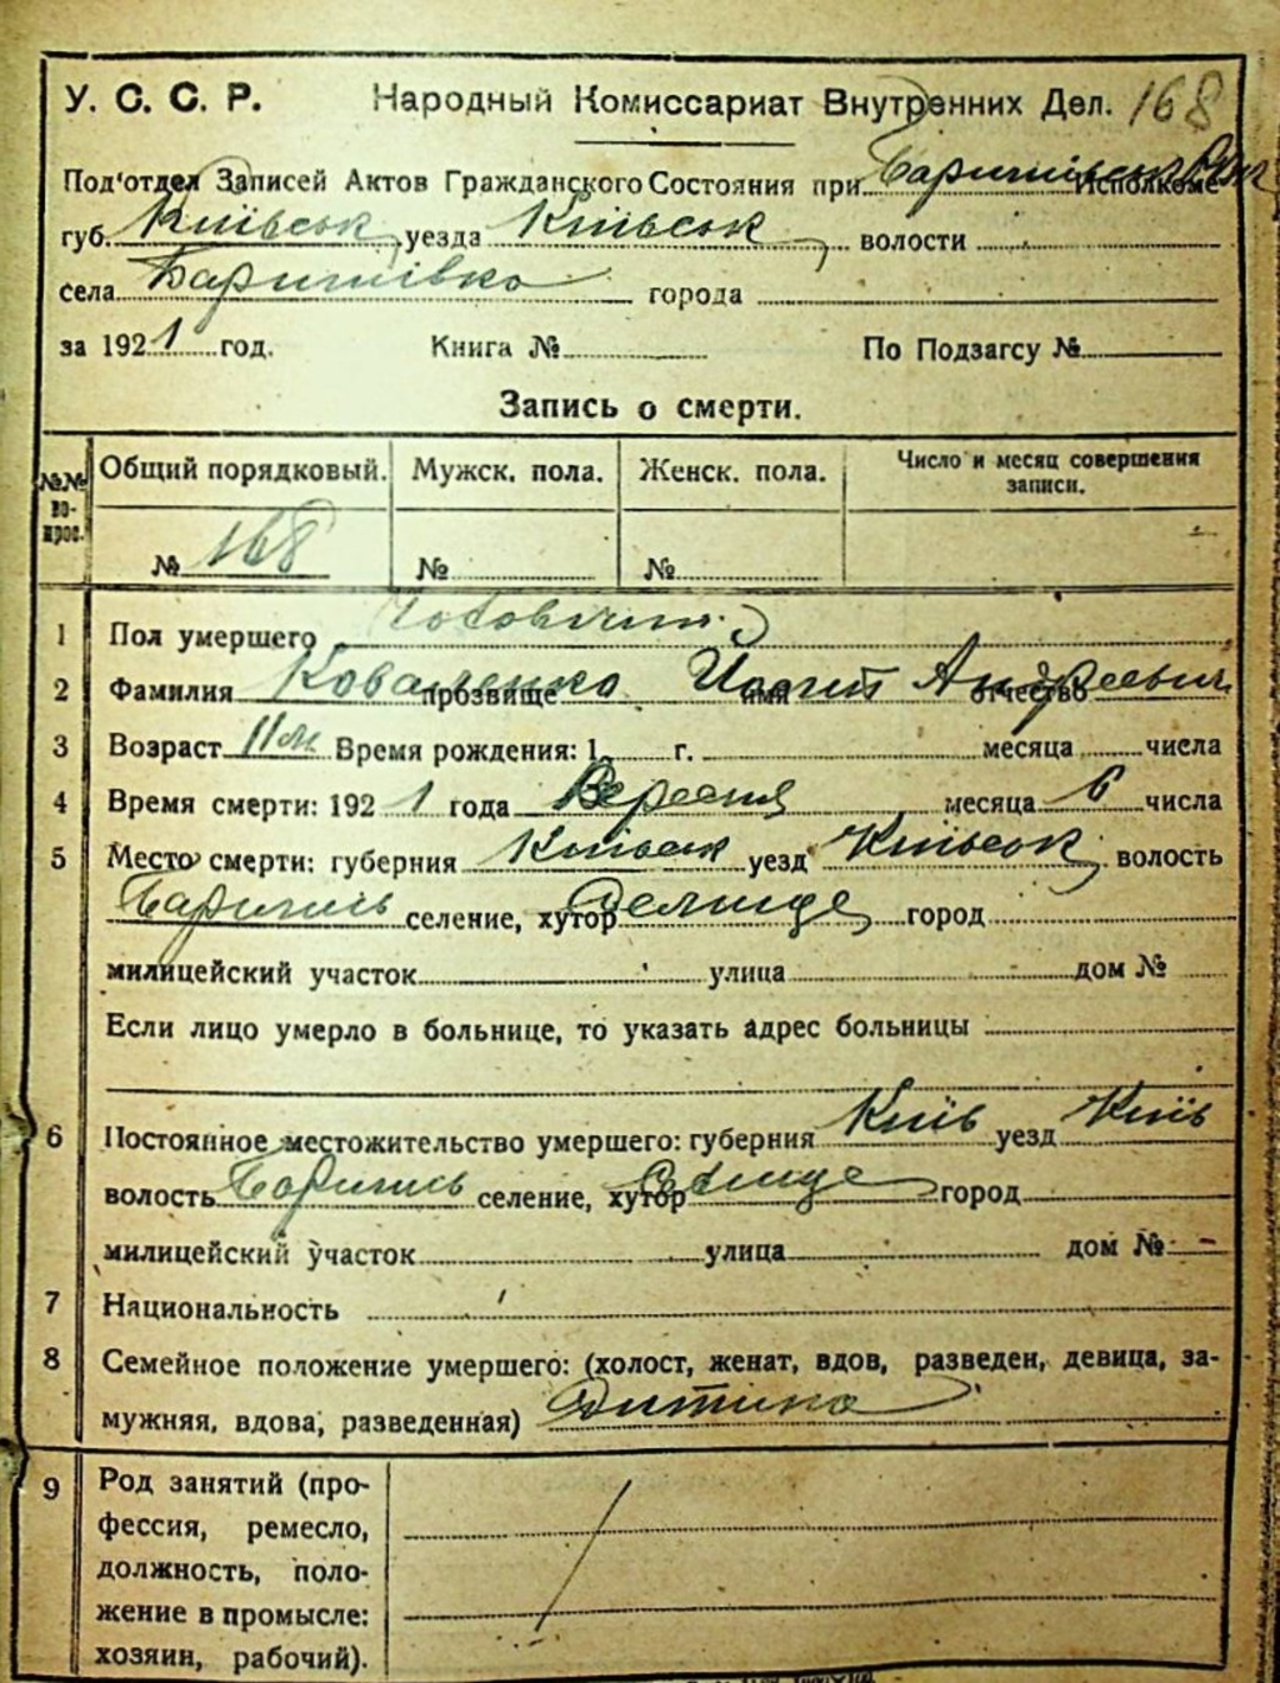 У. С. С. Р. Народный Комиссариат Внутренних Дел. 168
Под'отдел Записей Актов Гражданского Состояния при Исполкоме
губ. Київськ уезда Київськ волости
села Баришівка города
за 1921 год. Книга № По Подзагсу №
Запись о смерти.
№№ во-прос. Общий порядковый. Мужск. пола. Женск. пола. Число и месяц совершения
записи.
№ 168 № №
1 Пол умершего
2 Фамилия Коваленко прозвище имя Андреевич отчество
3 Возраст 11 м Время рождения: 1 г. месяца числа
4 Время смерти: 1921 года Вересня месяца 6 числа
5 Место смерти: губерния Київськ уезд Київськ волость
Баришів селение, хутор Селище город
милицейский участок улица дом №
Если лицо умерло в больнице, то указать адрес больницы
6 Постоянное местожительство умершего: губерния Київ уезд Київ
волость Баришів селение, хутор Селище город
милицейский участок улица дом №
7 Национальность
8 Семейное положение умершего: (холост, женат, вдов, разведен, девица, за-
мужняя, вдова, разведенная) Дитина
9 Род занятий (про-
фессия, ремесло,
должность, поло-
жение в промысле:
хозяин, рабочий).